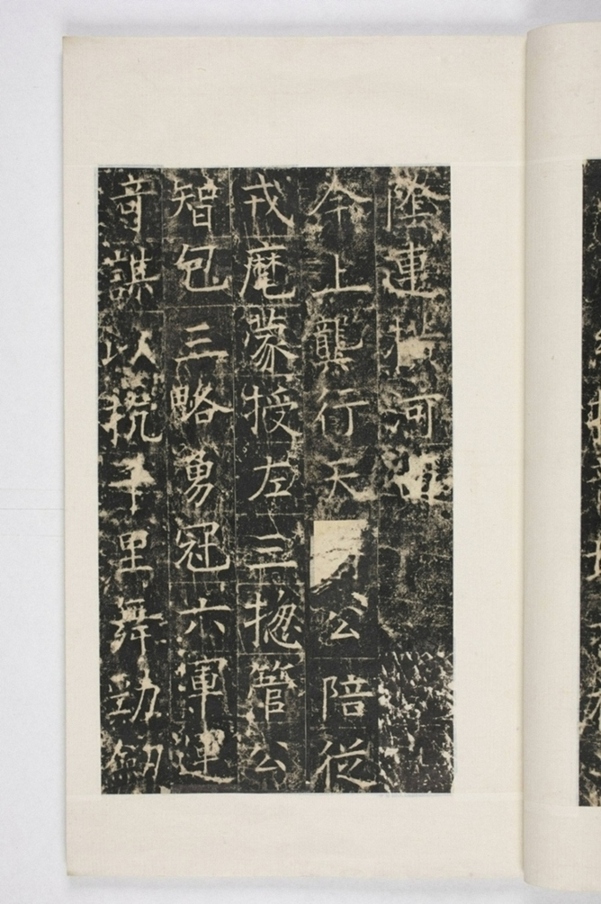 連河
今上龔行天公陪從
戎麾蒙授左三揔管公
智包三略勇冠六軍運
奇謀以千里舞勁劒